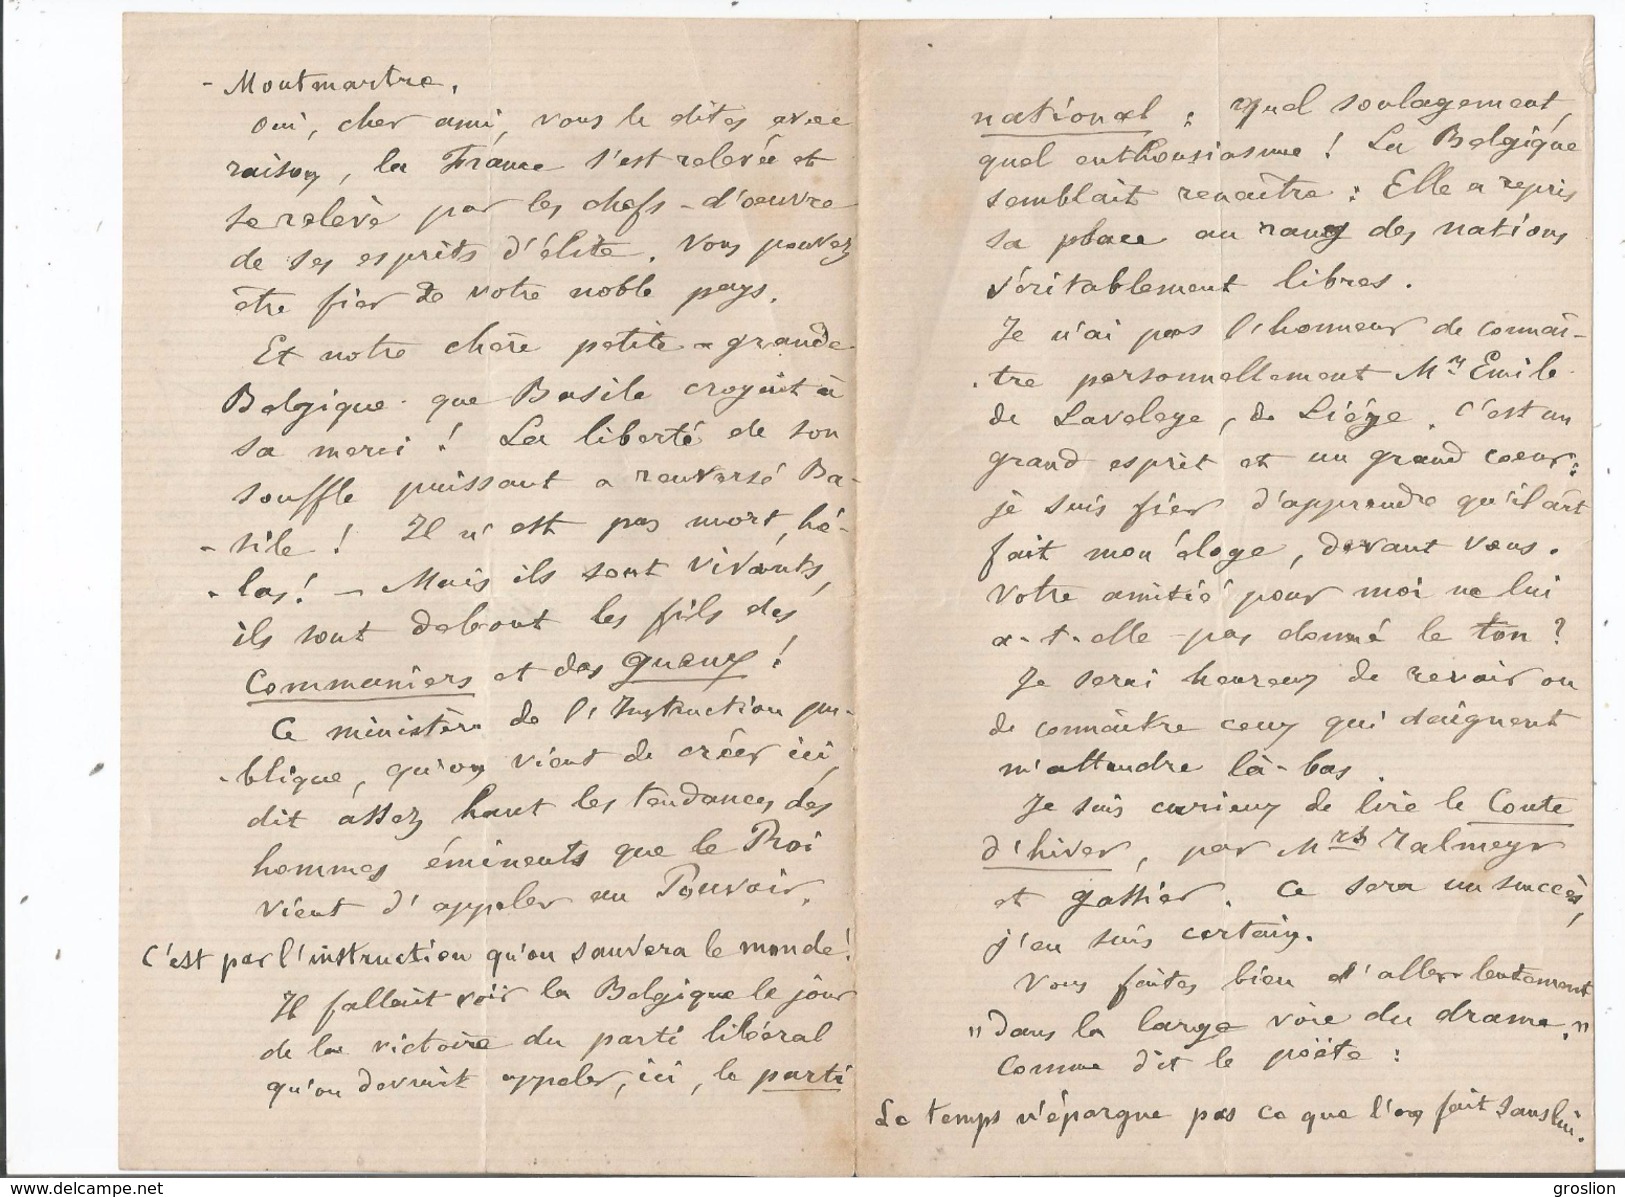 - Montmartre.
Oui, cher ami, vous le dites avec
raison, la France s'est relevée et
se relève par les chefs-d'œuvre
de ses esprits d'élite. Vous pouvez
être fier de votre noble pays.
Et notre chère petite - grande
Belgique que Basile croyait à
sa merci ! La liberté de son
souffle puissant a renversé Ba-
- sile ! Il n'est pas mort, hé-
- las ! — Mais ils sont vivants,
ils sont debout les fils des
Communiers et des gueux !
Ce ministère de l'Instruction pu-
- blique, qu'on vient de créer ici,
dit assez haut les tendances des
hommes éminents que le Roi
vient d'appeler au Pouvoir.
C'est par l'instruction qu'on sauvera le monde !
Il fallait voir la Belgique le jour
de la victoire du parti libéral
qu'on devrait appeler, ici, le parti
national : quel soulagement,
quel enthousiasme ! La Belgique
semblait renaître : Elle a repris
sa place au rang des nations
véritablement libres.
Je n'ai pas l'honneur de connaî-
- tre personnellement Mr Emile
de Laveleye, de Liége. C'est un
grand esprit et un grand cœur :
je suis fier d'apprendre qu'il ait
fait mon éloge, devant vous.
Votre amitié pour moi ne lui
a-t-elle pas donné le ton ?
Je serai heureux de revoir ou
de connaître ceux qui daignent
m'attendre là-bas.
Je suis curieux de lire le Conte
d'hiver, par Mrs Talmeyr
et Gassier. Ce sera un succès,
j'en suis certain.
Vous faites bien d'aller lentement
"dans la large voie du drame."
Comme dit le poète :
Le temps n'épargne pas ce que l'on fait sans lui.
delcampe.net
groslion